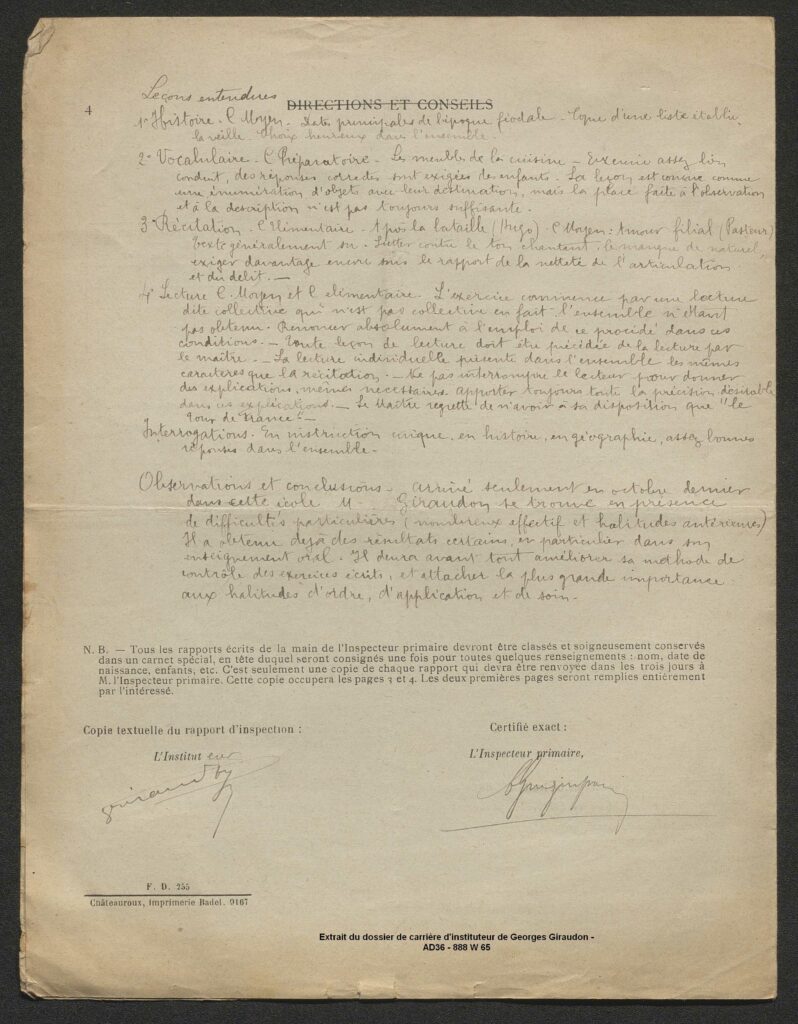 4
Leçons entendues
DIRECTIONS ET CONSEILS
1° Histoire - C Moyen - Dates principales de l'époque féodale - Copie d'une liste établie
la veille - Choix heureux dans l'ensemble -
2° Vocabulaire - C Préparatoire - Les meubles de la cuisine - Exercice assez bien
conduit, des réponses correctes sont exigées des enfants. La leçon est conçue comme
une énumération d'objets avec leur destination, mais la place faite à l'observation
et à la description n'est pas toujours suffisante.
3° Récitation - C Elementaire - Après la bataille (Hugo) - C Moyen : Amour filial (Pasteur)
Texte généralement su - Lutter contre le ton chantant, le manque de naturel,
exiger davantage encore sous le rapport de la netteté de l'articulation
et du débit. -
4° Lecture C. Moyen et C élémentaire. L'exercice commence par une lecture
dite collective qui n'est pas collective en fait l'ensemble n'étant
pas obtenu - Renoncer absolument à l'emploi de ce procédé dans ces
conditions. - Toute leçon de lecture doit être précédée de la lecture par
le maître. - La lecture individuelle présente dans l'ensemble les mêmes
caractères que la récitation - Ne pas interrompre le lecteur pour donner
des explications, mêmes nécessaires apporter toujours toute la précision désirable
dans ces explications. - Le Maître regrette de n'avoir à sa disposition que "le
Tour de France" -
Interrogations - En instruction civique, en histoire, en géographie, assez bonnes
réponses dans l'ensemble -
Observations et conclusions - Arrivé seulement en octobre dernier
dans cette école M - Giraudon se trouve en présence
de difficultés particulières (nombreux effectif et habitudes antérieures)
Il a obtenu déjà des résultats certains, en particulier dans son
enseignement oral. Il devra avant tout améliorer sa méthode de
contrôle des exercices écrits, et attacher la plus grande importance
aux habitudes d'ordre, d'application et de soin -
N. B. — Tous les rapports écrits de la main de l'Inspecteur primaire devront être classés et soigneusement conservés
dans un carnet spécial, en tête duquel seront consignés une fois pour toutes quelques renseignements : nom, date de
naissance, enfants, etc. C'est seulement une copie de chaque rapport qui devra être renvoyée dans les trois jours à
M. l'Inspecteur primaire. Cette copie occupera les pages 3 et 4. Les deux premières pages seront remplies entièrement
par l'intéressé.
Copie textuelle du rapport d'inspection :
Certifié exact :
L'Instituteur
L'Inspecteur primaire,
F. D. 255
Châteauroux, Imprimerie Badel. 9167
Extrait du dossier de carrière d'instituteur de Georges Giraudon -
AD36 - 888 W 65